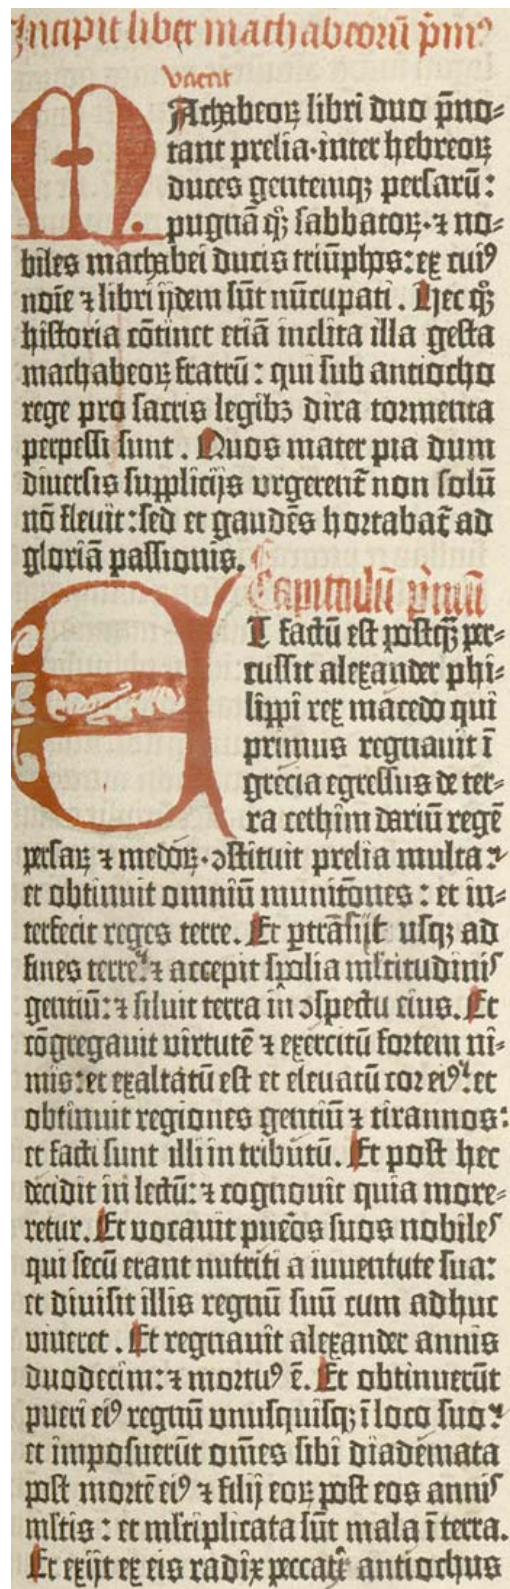 Incipit liber machabeorū p̄mꝰ
vacat
MAchabeoꝝ libri duo p̄no⸗
tant prelia·inter hebreoꝝ
duces gentemqꝫ persarū:
pugnā qꝫ sabbatoꝝ·⁊ no⸗
biles machabei ducis triūphos:ex cuiꝰ
noīe ⁊ libri ijdem sūt nūcupati. Hec qꝫ
historia cōtinet etiā inclita illa gesta
machabeoꝝ fratrū: qui sub antiocho
rege pro sacris legibꝫ dira tormenta
perpessi sunt. Quos mater pia dum
diuersis supplicijs vrgerent̄ non solū
nō fleuit:sed et gaudēs hortabat̄ ad
gloriā passionis.
Capitulū p̄mū
ET factū est postqꝫ per⸗
cussit alexander phi⸗
lippi rex macedo qui
primus regnauit ī
grecia egressus de ter⸗
ra cethim dariū regē
persaꝝ ⁊ medoꝝ·ↄstituit prelia multa:⁊
et obtinuit omniū munitōnes: et in⸗
terfecit reges terre. Et ꝑtrāsijt usqꝫ ad
fines terre:⁊ accepit spolia mltitudinis
gentiū:⁊ siluit terra in ↄspectu eius. Et
cōgregauit virtutē ⁊ exercitū fortem ni⸗
mis:et exaltatū est et eleuatū cor eiꝰ:et
obtinuit regiones gentiū ⁊ tirannos:
et facti sunt illi in tributū. Et post hec
decidit in lectū:⁊ cognouit quia more⸗
retur. Et vocauit pueros suos nobiles
qui secū erant nutriti a iuuentute sua:
et diuisit illis regnū suū cum adhuc
viueret. Et regnauit alexander annis
duodecim:⁊ mortuꝰ ē. Et obtinuerūt
pueri eiꝰ regnū unusquisqꝫ ī loco suo:⁊
et imposuerūt om̄es sibi diademata
post mortē eiꝰ ⁊ filij eoꝝ post eos annis
mltis: et mltiplicata sūt mala ī terra.
Et exijt ex eis radix peccatꝝ antiochus